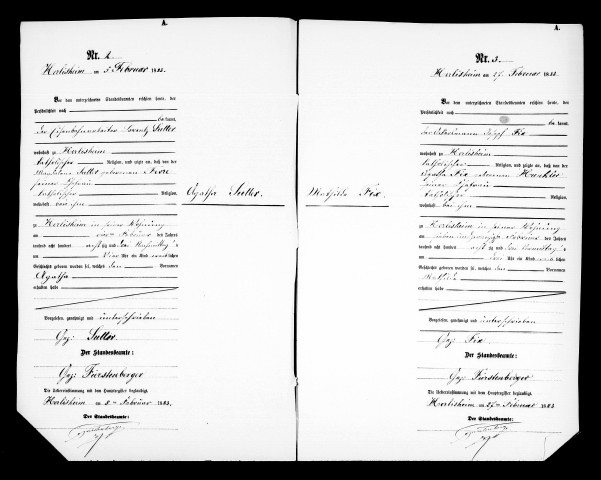 A.
Nr. 2.
Herlisheim am 5. Februar 1883.
Vor dem unterzeichneten Standesbeamten erschien heute, der
Persönlichkeit nach
be kannt,
der Eisenbahnarbeiter Sutter
wohnhaft zu Herlisheim
katholischer Religion, und zeigte an, daß von der
Magdalena Sutter geborenen
seiner Ehefrau
katholischer Religion,
wohnhaft bei ihm
zu Herlisheim in seiner Wohnung
am Februar des Jahres
tausend acht hundert achtzig und drei Nachmittag s
um vier Uhr ein Kind weib lichen
Geschlechts geboren worden sei, welches den Vornamen
Agatha
erhalten habe
Vorgelesen, genehmigt und unterschrieben
Gez: Sutter.
Der Standesbeamte:
Gez: Fürstenberger
Die Uebereinstimmung mit dem Hauptregister beglaubigt.
Herlisheim am 5ten Februar 1883.
Der Standesbeamte:
Fürstenberger
Agatha Sutter.
A.
Nr. 3.
Herlisheim am 27. Februar 1883.
Vor dem unterzeichneten Standesbeamten erschien heute, der
Persönlichkeit nach
be kannt,
der Joseph Fix
wohnhaft zu Herlisheim
katholischer Religion, und zeigte an, daß von der
Agatha Fix geborenen
seiner Ehefrau
katholischer Religion,
wohnhaft bei ihm
zu Herlisheim in seiner Wohnung
am Februar des Jahres
tausend acht hundert achtzig und drei Vormittag s
um Uhr ein Kind weib lichen
Geschlechts geboren worden sei, welches den Vornamen
Mathilde
erhalten habe
Vorgelesen, genehmigt und unterschrieben
Gez: Fix.
Der Standesbeamte:
Gez: Fürstenberger
Die Uebereinstimmung mit dem Hauptregister beglaubigt.
Herlisheim am 27ten Februar 1883.
Der Standesbeamte:
Fürstenberger
Mathilde Fix.